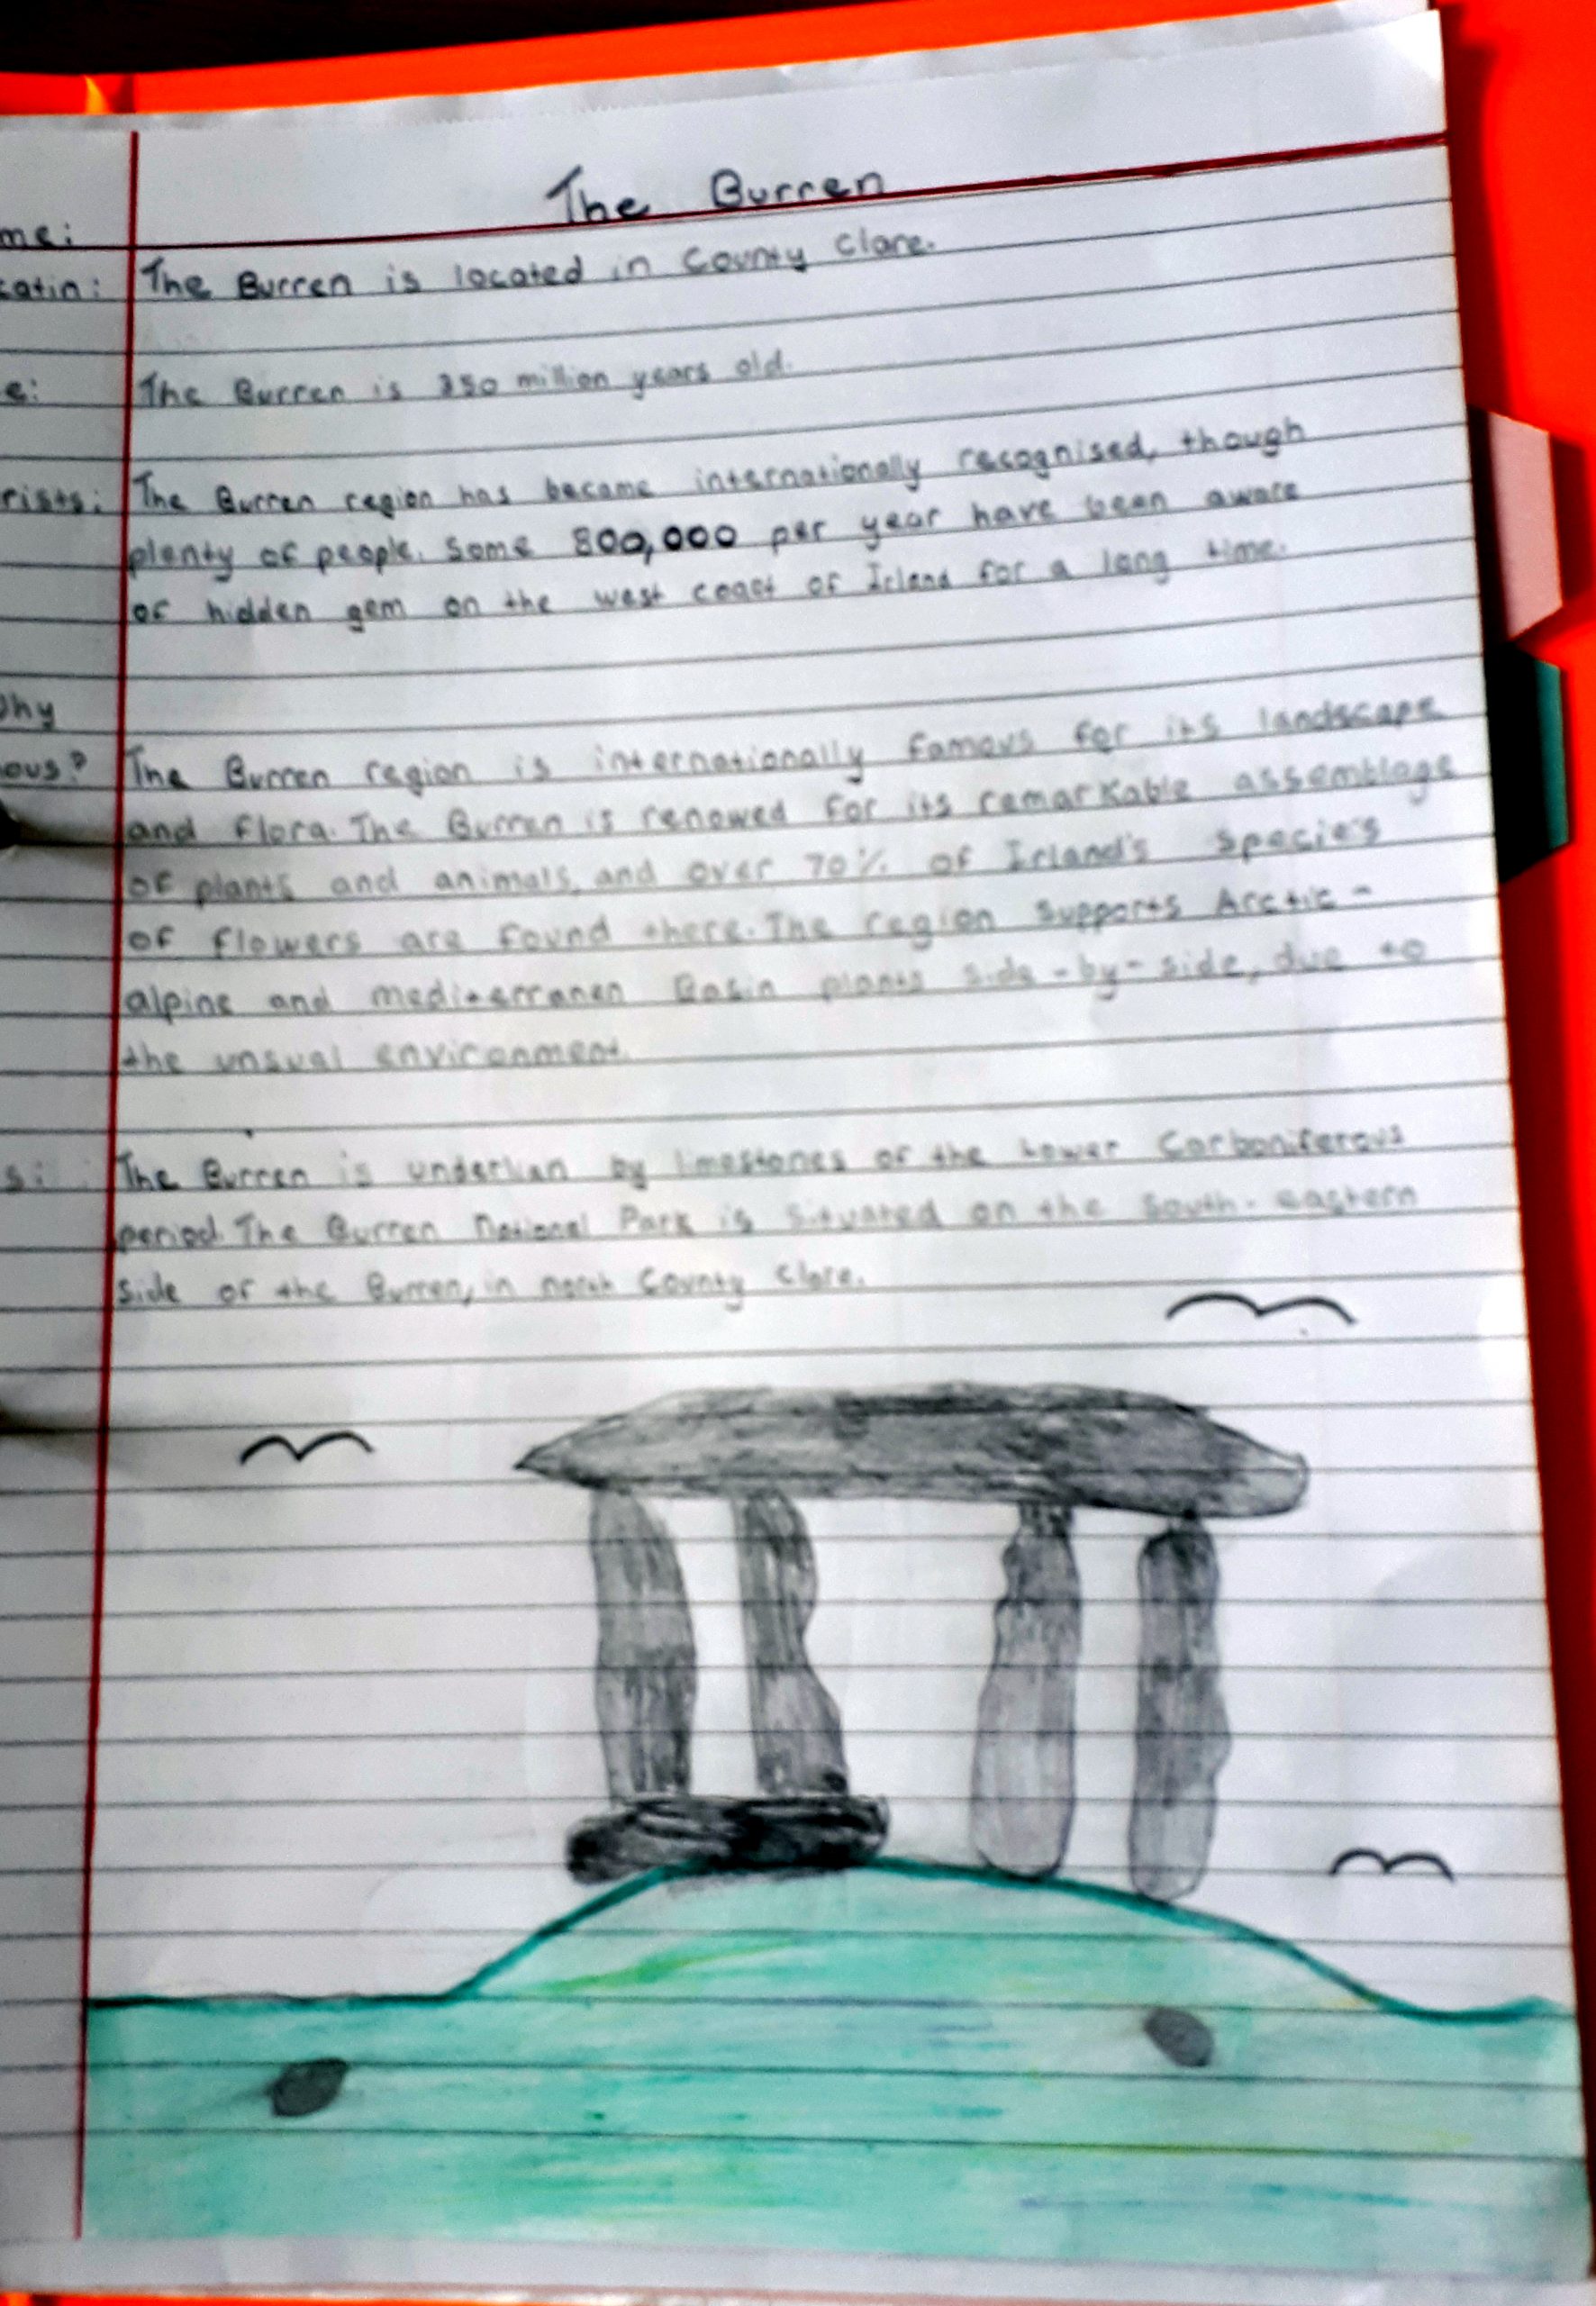 The Burren
me:
catin: The Burren is located in County Clare.
e: The Burren is 350 million years old.
rists: The Burren region has became internationally recognised, though
plenty of people. Some 800,000 per year have been aware
of hidden gem on the west coast of Irland for a long time.
hy
ous? The Burren region is internationally famous for its landscape
and flora. The Burren is renowed for its remarkable assemblage
of plants and animals, and over 70% of Irland's species
of flowers are found there. The region supports Arctic-
alpine and mediterranen Basin plants side-by-side, due to
the unsual environment.
s: The Burren is underlian by limestones of the Lower Carboniferous
period. The Burren National Park is situated on the South-eastern
side of the Burren, in north County Clare.